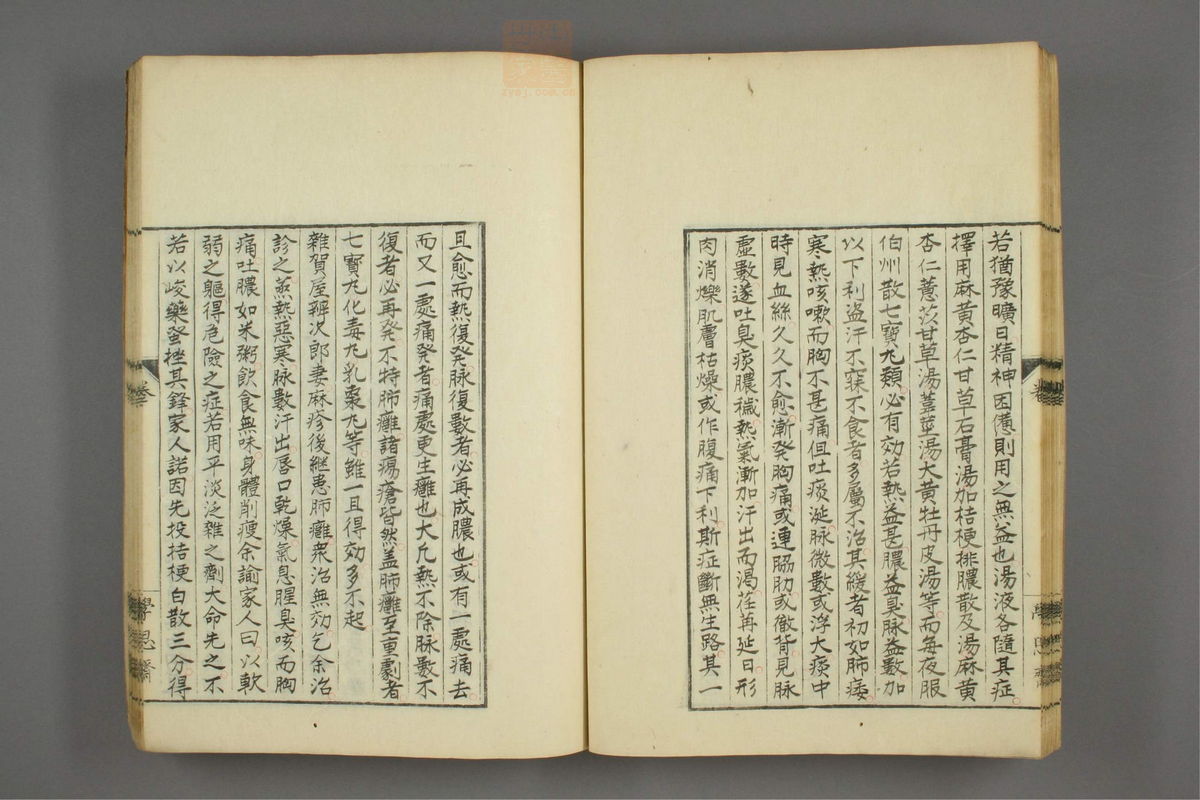 若猶豫曠日精神困憊則用之無益也湯液各隨其症
擇用麻黄杏仁甘草石膏湯加桔梗排膿散及湯麻黄
杏仁薏苡甘草湯葦莖湯大黄牡丹皮湯等而每夜服
伯州散七寶丸類必有効若熱益甚膿益臭脉益數加
以下利盗汗不寐不食者多屬不治其緩者初如肺痿
寒熱咳嗽而胸不甚痛但吐痰涎脉微數或浮大痰中
時見血絲久久不愈漸發胸痛或連脇肋或徹背見脉
虚數遂吐臭痰膿穢熱氣漸加汗出而渇荏苒延日形
肉消爍肌膚枯燥或作腹痛下利斯症斷無生路其一
且愈而熱復発脉復數者必再成膿也或有一處痛去
而又一處痛発者痛處更生癰也大凡熱不除脉數不
復者必再発不特肺癰諸瘍瘡皆然盖肺癰至重劇者
七寶丸化毒丸乳棗丸等雖一且得効多不起
雜賀屋辨次郎妻麻疹後継患肺癰衆治無効乞余治
診之蒸熱惡寒脉數汗出唇口乾燥氣息腥臭咳而胸
痛吐膿如米粥飲食無味身體削瘦余諭家人曰以軟
弱之軀得危險之症若用平淡泛雜之劑大命先之不
若以峻藥蚤挫其鋒家人諾因先投桔梗白散三分得
卷
學思齋
zysj.com.cn